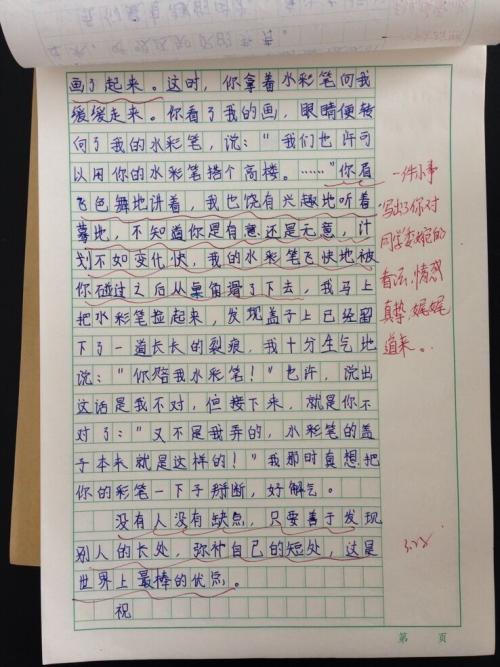 画了起来。这时，你拿着水彩笔向我
缓缓走来。你看了我的画，眼睛便转
向了我的水彩笔，说：“我们也许可
以用你的水彩笔搭个高楼。……”你眉
飞色舞地讲着，我也饶有兴趣地听着
蓦地，不知道你是有意还是无意，计
划不如变化快，我的水彩笔飞快地被
你碰过之后从桌角滑了下去，我马上
把水彩笔捡起来，发现盖子上已经留
下了一道长长的裂痕，我十分生气地
说：“你赔我水彩笔！”也许，说出
这话是我不对，但接下来，就是你不
对了：“又不是我弄的，水彩笔的盖
子本来就是这样的！”我那时真想把
你的彩笔一下子掰断，好解气。
没有人没有缺点，只要善于发现
别人的长处，弥补自己的短处，这是
世界上最棒的优点。
祝
一件小事
写出了你对
同学委婉的
看法，情感
真挚，娓娓
道来。
第 页